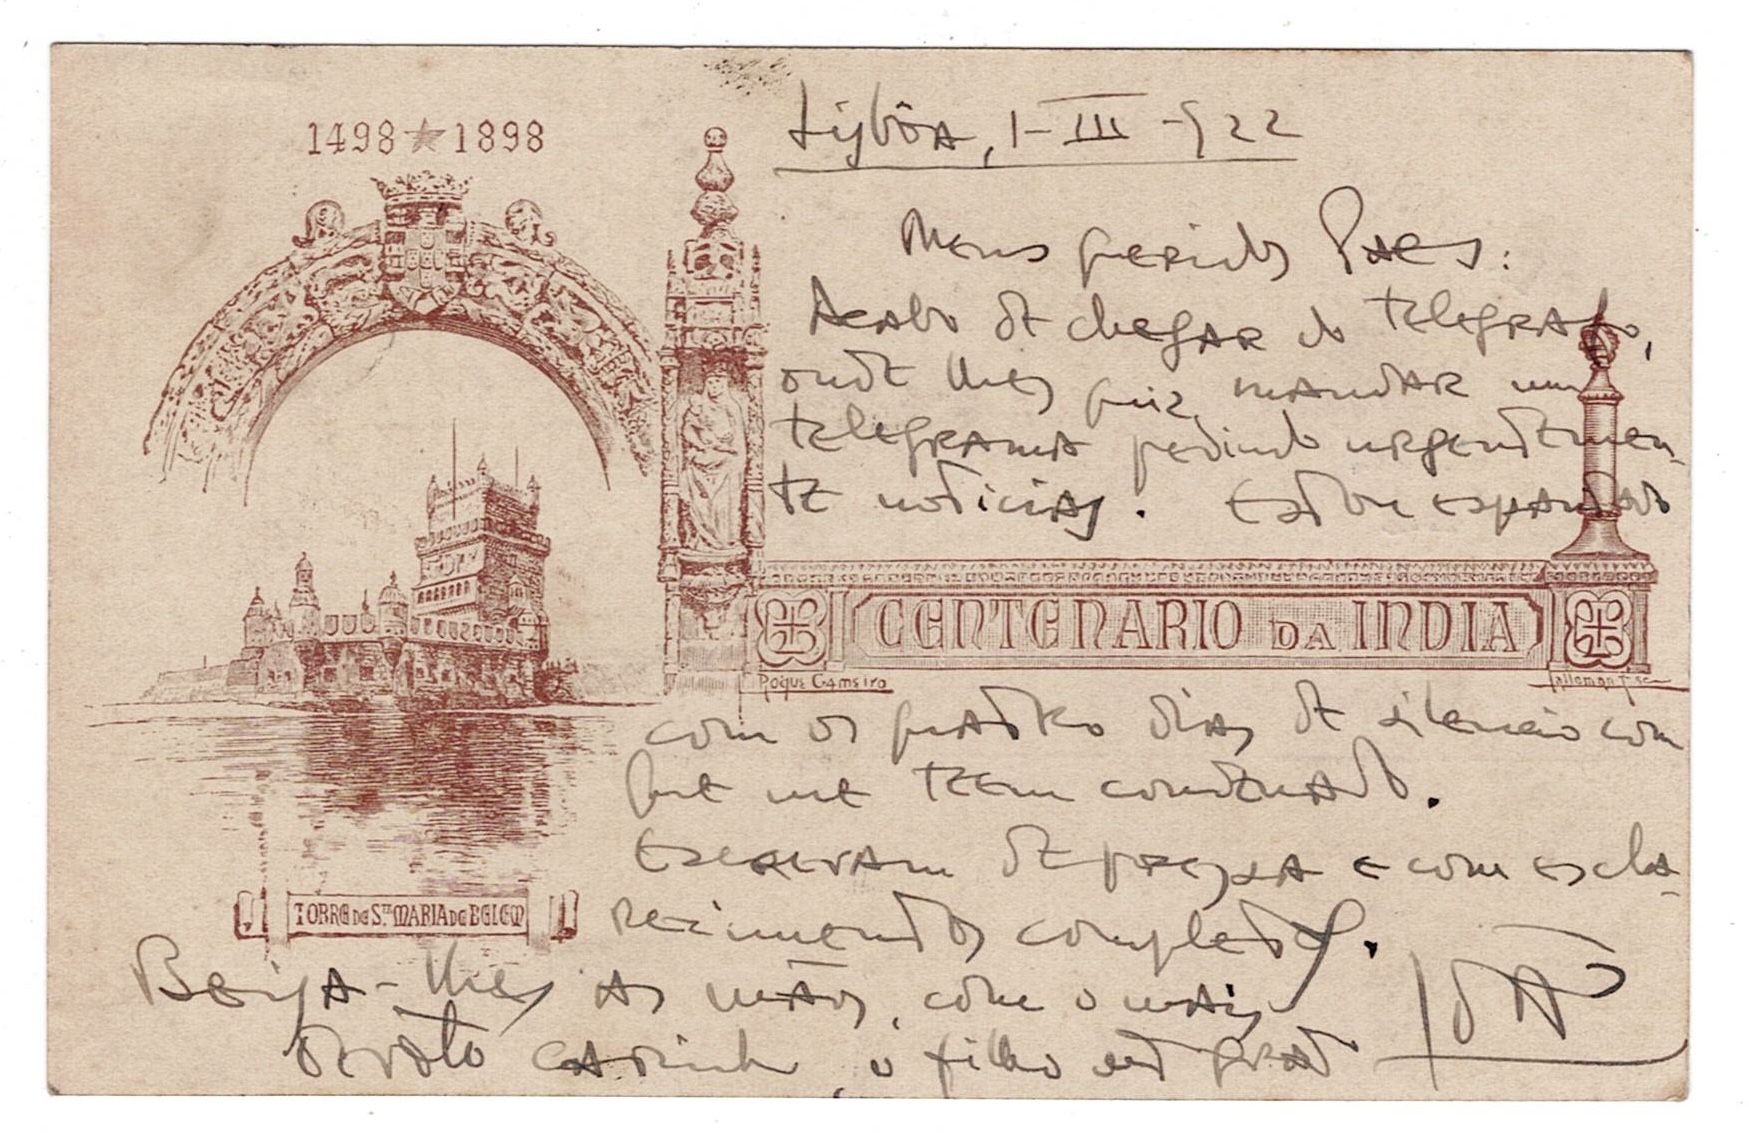 1498 ★ 1898
Lisbôa, 1-III-922
Meus queridos Paes:
Acabo de chegar do telegrafo,
onde lhes quiz mandar um
telegrama pedindo urgentemen-
te noticias. Estou espantado
CENTENARIO DA INDIA
Roque Gameiro
com os quatro dias de silencio com
que me teem condenado.
Escrevam depressa e com escla-
recimentos completos.
TORRE DE S.TA MARIA DE BELEM
Beija-lhes as mãos, com o mais
devoto carinho, o filho grato